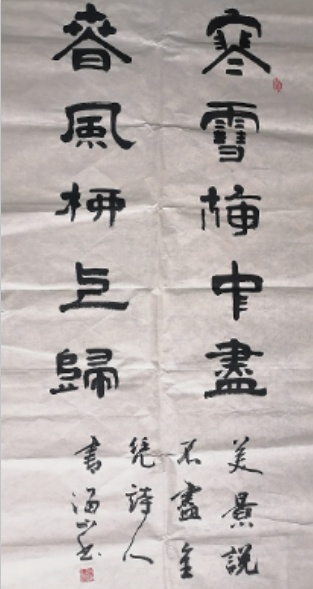 寒雪梅中盡
春風柳上歸
美景說
不盡全
凭詩人
書海